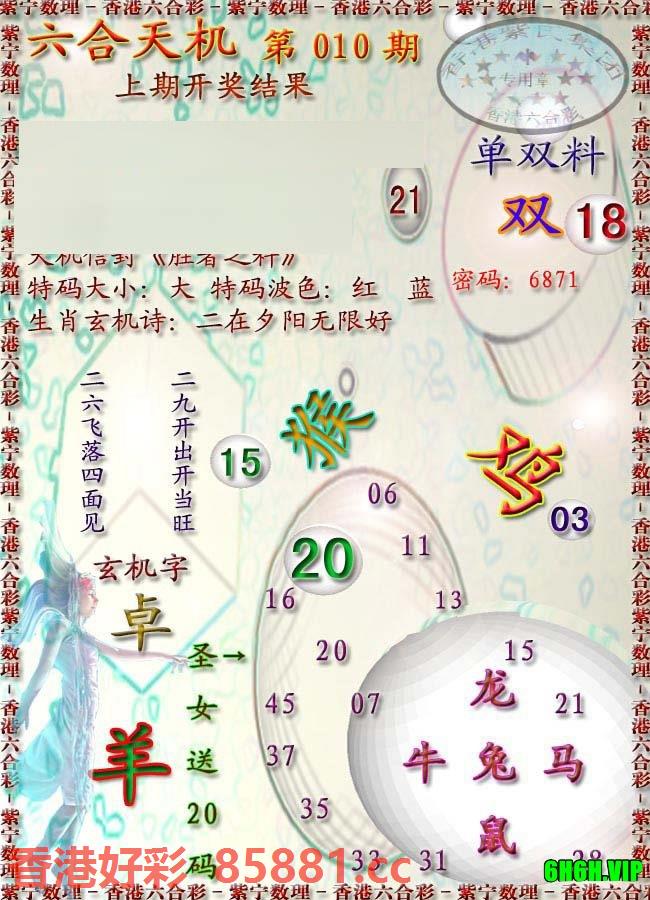 紫宁数理－香港六合彩－紫宁数理－香港六合彩－紫宁数理
六合天机 第 010 期
上期开奖结果
专用章
香港六合彩
单双料
双 18
21
天机信封《胜者之料》
特码大小：大 特码波色：红 蓝
密码：6871
生肖玄机诗：二在夕阳无限好
二九开出开当旺
二六飞落四面见
猴
15
鸡
03
06
20
11
16
13
玄机字
卓
圣→
女
送
20
码
羊
20
15
龙
45
07
21
37
牛 兔 马
35
鼠
33
31
28
香港好彩 85881.cc
6H6H.VIP
紫宁数理－香港六合彩－紫宁数理－香港六合彩－紫宁数理